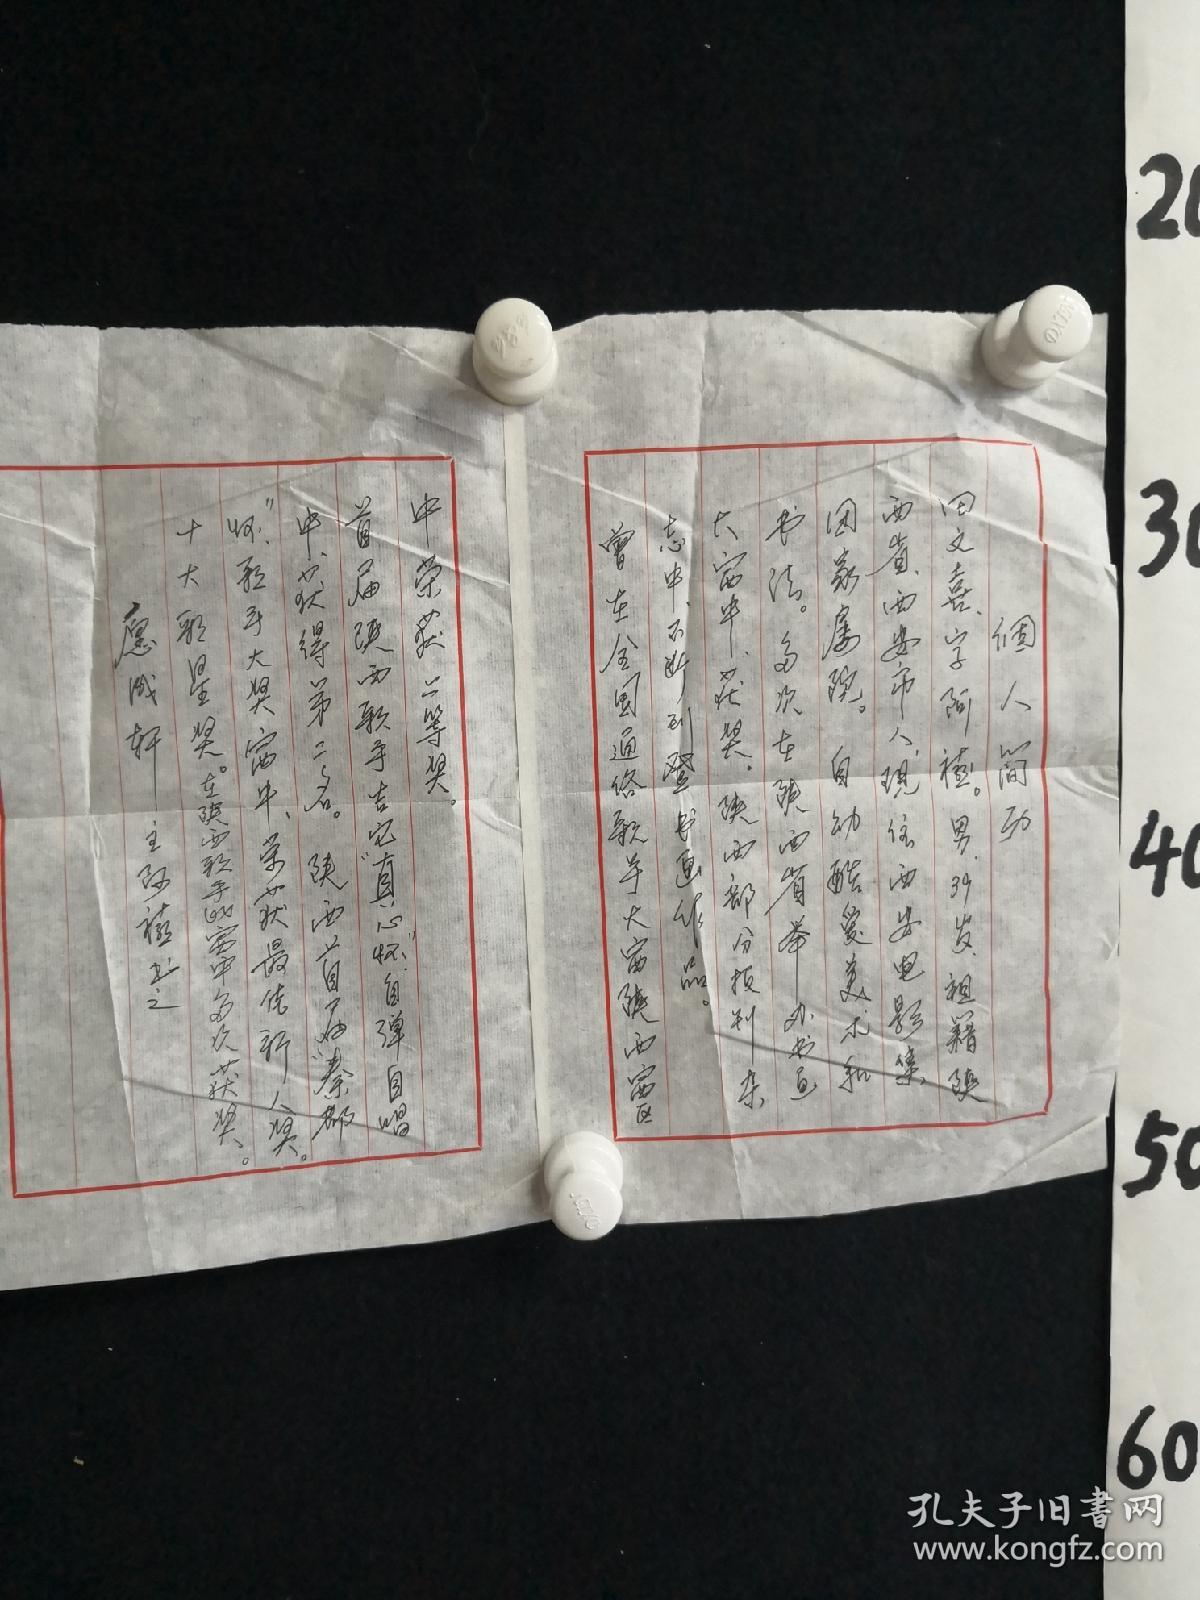 個人簡历
田文喜、字阿禧。男、39岁、祖籍陕
西省、西安市人、现住西安电影集
团家属院。自幼酷爱美术和
书法。多次在陕西省举办书画
大赛中、获奖。陕西部分报刊杂
志中、不断刊登书画作品。
曾在全国通俗歌手大赛陕西赛区
中荣获二等奖。
首届陕西歌手吉它"真心怀"自弹自唱
中、获得第二名。陕西首届"秦都
怀"歌手大奖赛中、荣获最佳新人奖。
十大歌星奖。在陕西歌手 赛中多次获奖。
愿成轩 主阿禧书之
20
30
40
50
60
孔夫子旧书网
www.kongfz.com